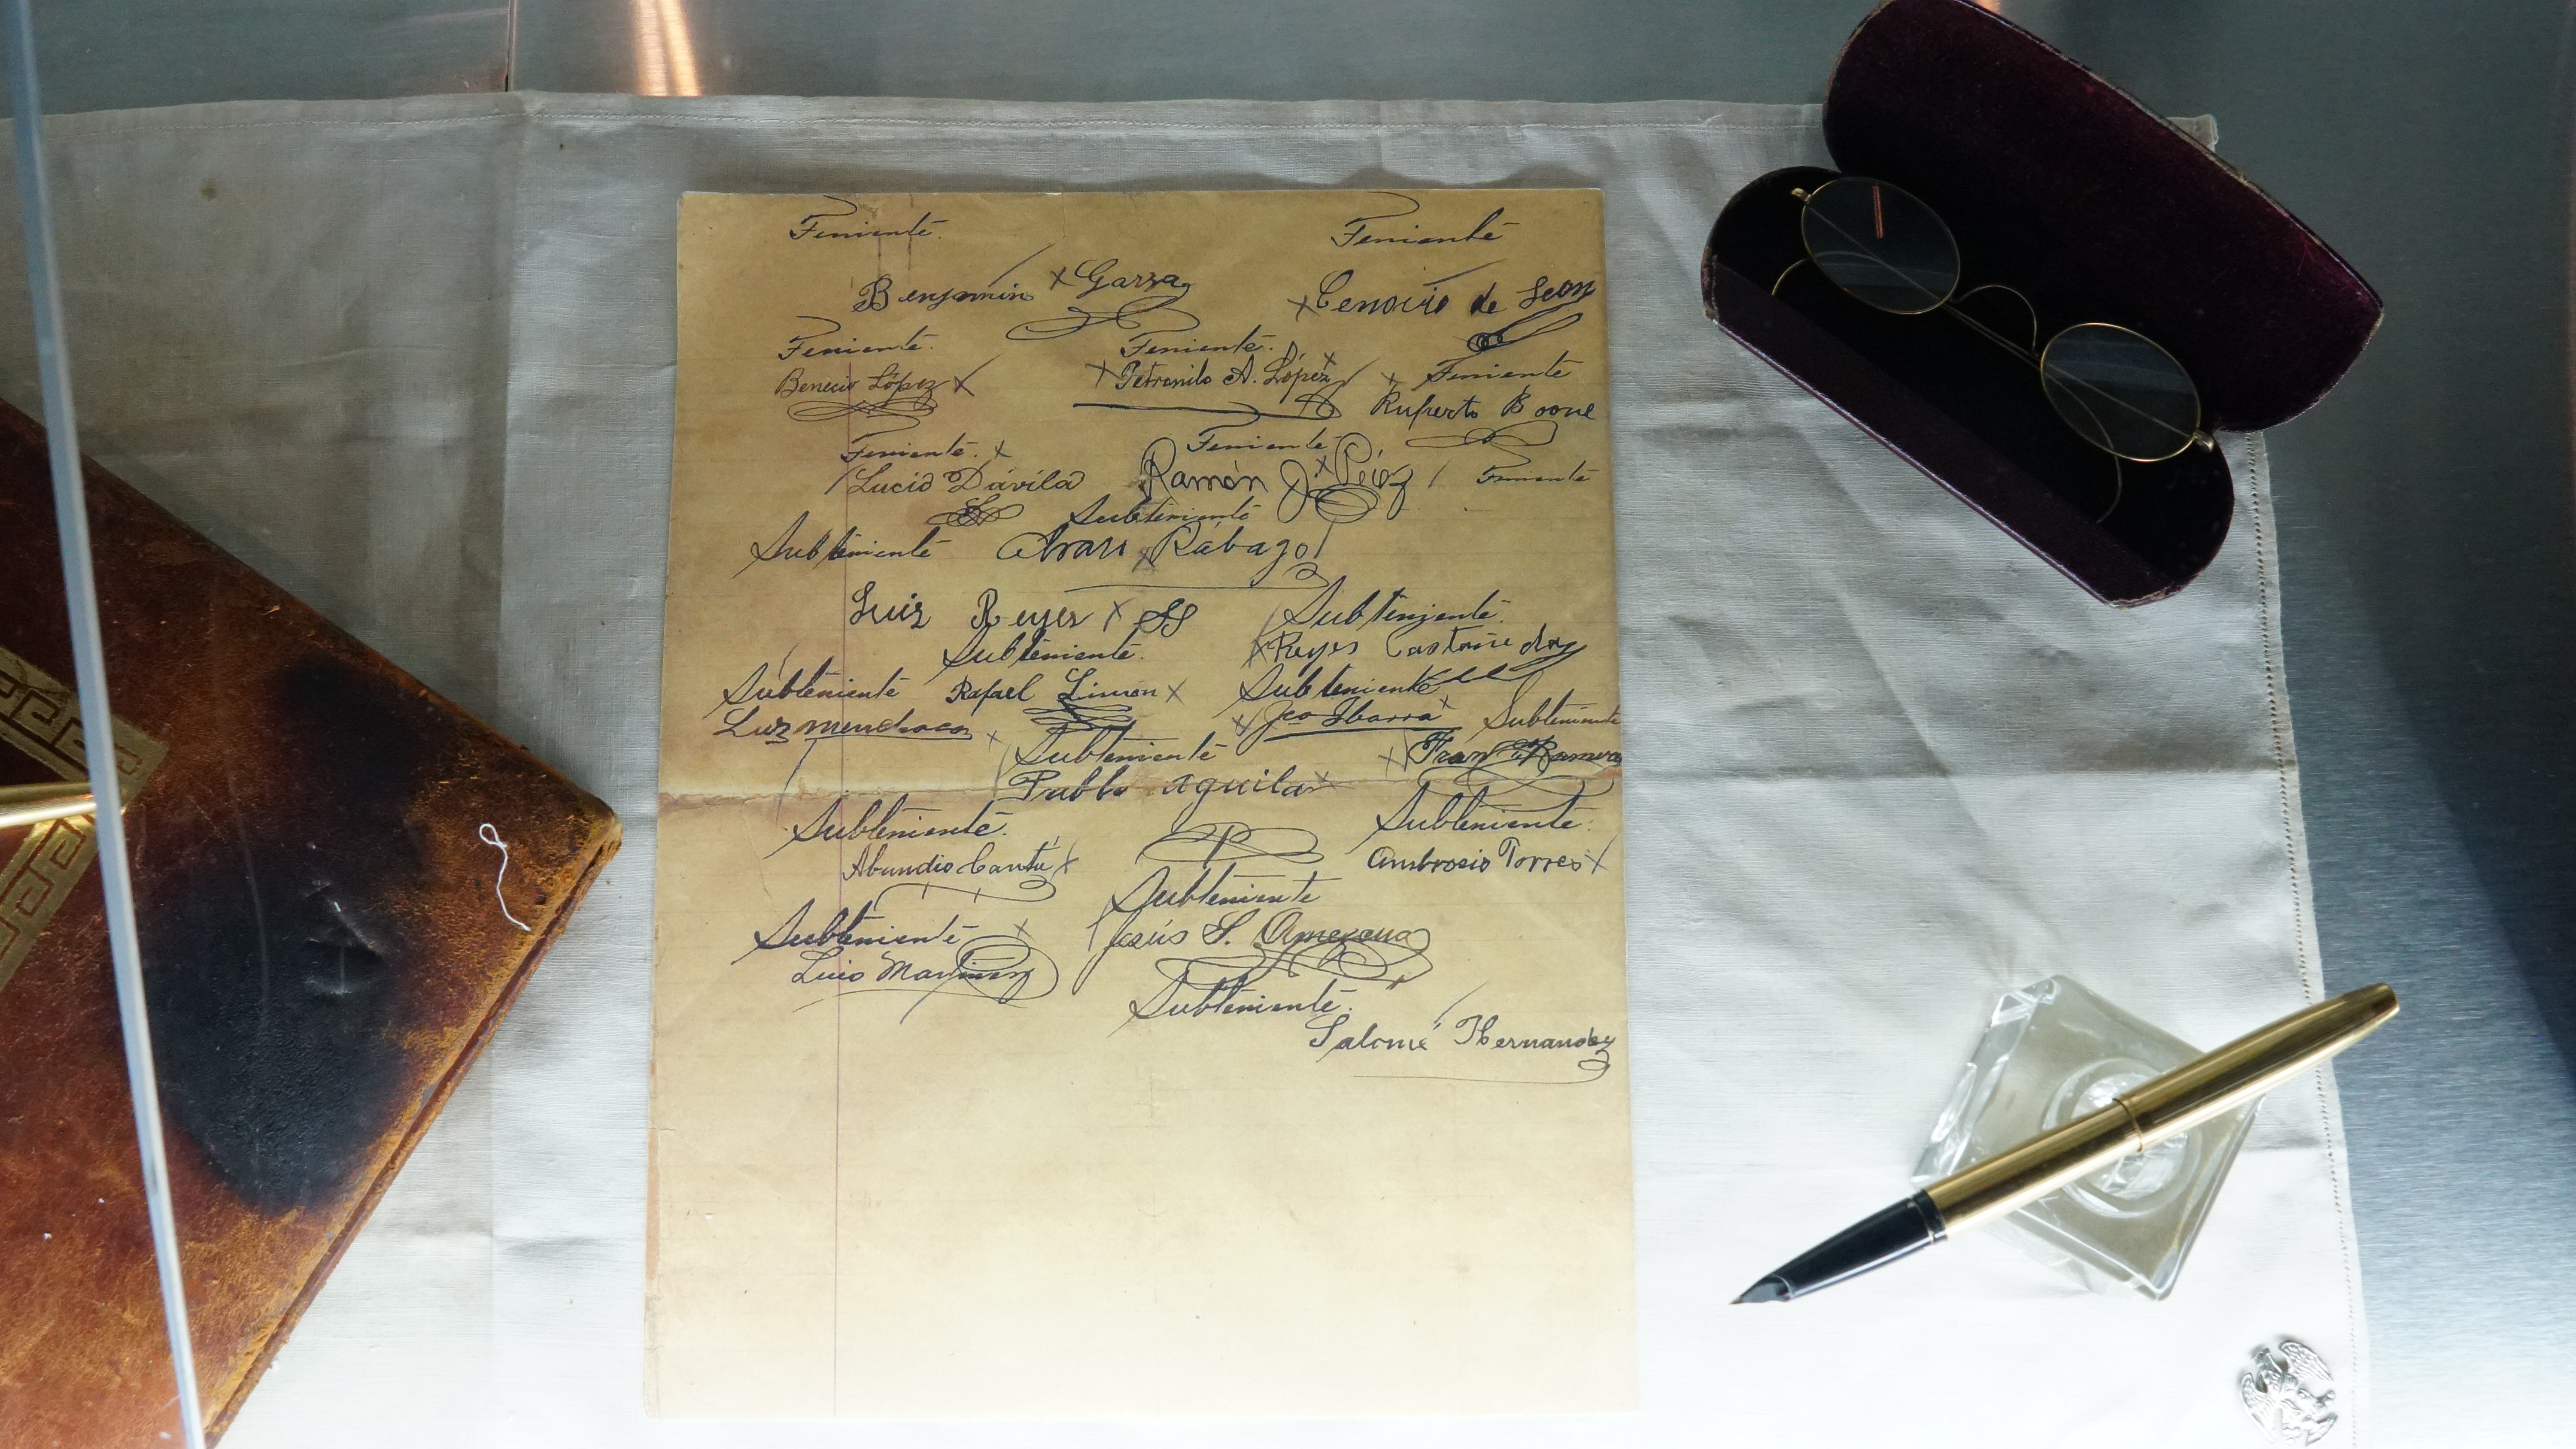 Teniente. Teniente
Benjamin x Garza x Cenovio de Leon
Teniente. Teniente.
Benecio López x x Petronilo A. López x x Teniente
Ruperto Boone
Teniente. x Teniente
Lucio Dávila Ramón J. x Pérez Teniente
Subteniente
Subteniente x Rábago
Luis Reyes x Subteniente.
Subteniente. x Reyes Castañeda
Subteniente Rafael Limón x Subteniente
Luz Mendoza x x Jco Ibarra x Subteniente
Subteniente x Fran
Pablo Aguilar x
Subteniente. Subteniente.
Abundio Cantú x Ambrosio Torres x
Subteniente
Subteniente x Jesús S.
Luis Martinez
Subteniente.
Salomé Hernandez